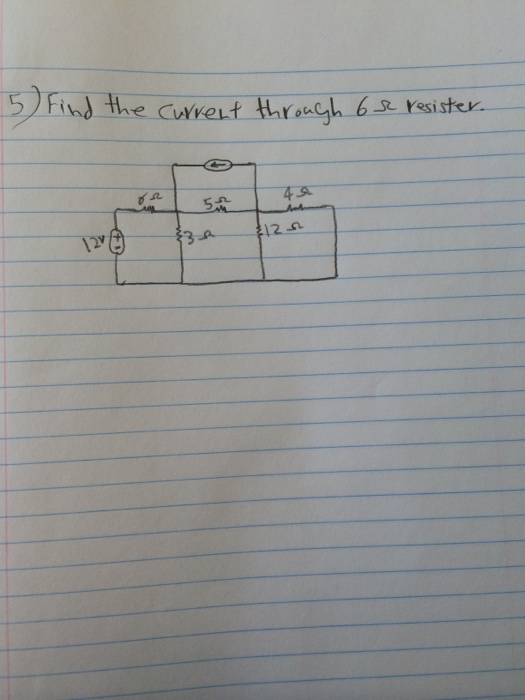 5) Find the current through 6 Ω resister.
6 Ω
5 Ω
4 Ω
12v
+
-
3 Ω
12 Ω